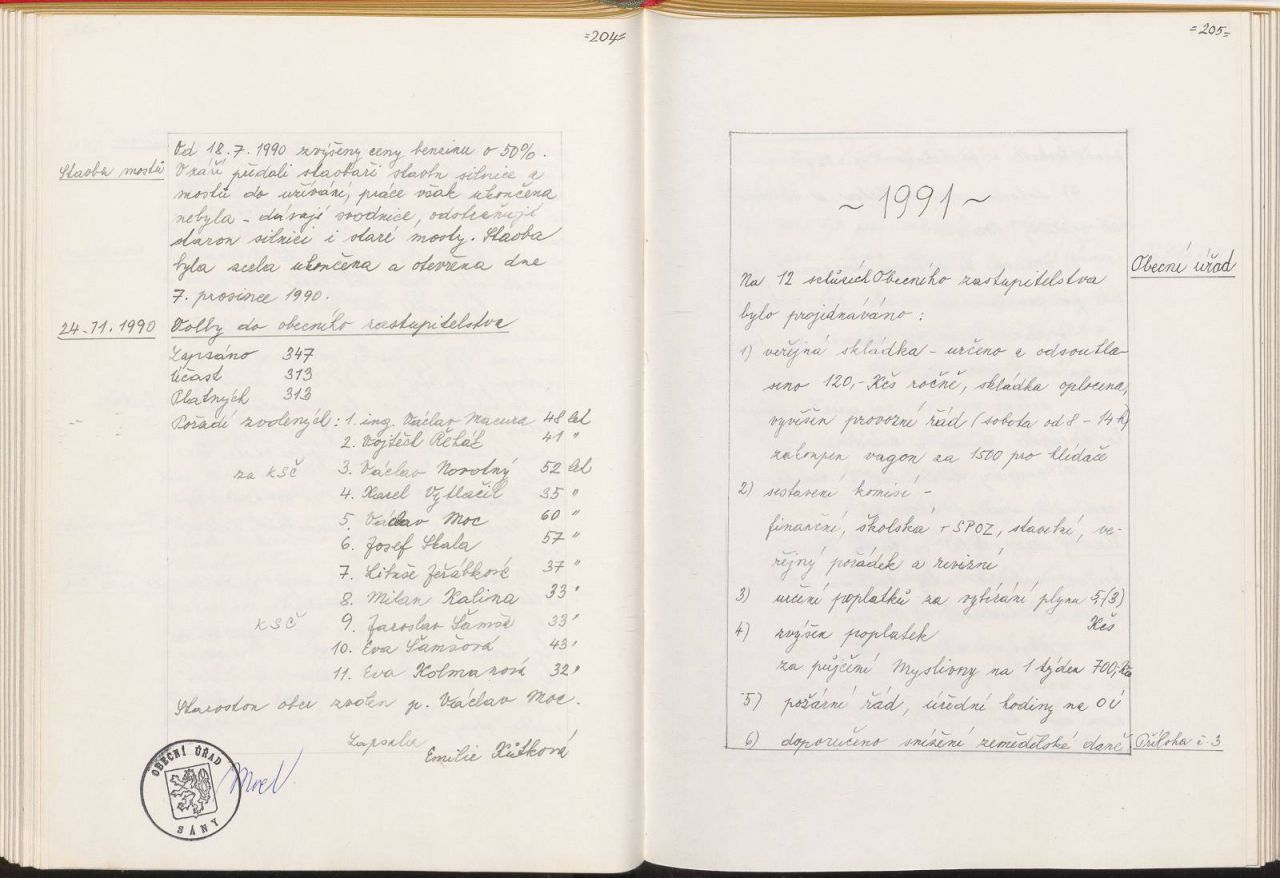 =204=
Od 18.7.1990 zvýšeny ceny benzinu o 50%.
Stavba mostů
V září předali stavbaři stavbu silnice a
mostů do užívání, práce však ukončena
nebyla - dávají svodnice, odstraňují
starou silnici i staré mosty. Stavba
byla zcela ukončena a otevřena dne
7. prosince 1990.
24.11.1990 Volby do obecního zastupitelstva
Zapsáno 347
Účast 313
Platných 313
Pořadí zvolených: 1. ing. Václav Macura 48 let
2. Vojtěch 41 "
za KSČ 3. Václav Novotný 52 let
4. Karel Vytlačil 35 "
5. Václav Moc 60 "
6. Josef Skala 57 "
7. Libuše Jeřábková 37 "
8. Milan Kalina 33 "
KSČ 9. Jaroslav Šamša 33 "
10. Eva Šamšová 43 "
11. Eva Kolmanová 32 "
Starostou obce zvolen p. Václav Moc.
Zapsala
Emilie Kůtková
OBECNÍ ÚŘAD
SÁNY
Moc V
=205=
~ 1991 ~
Obecní úřad
Na 12 schůzích Obecního zastupitelstva
bylo projednáváno:
1) veřejná skládka - určeno a odsouhla-
seno 120,- Kčs ročně, skládka oplocena,
vyvěšen provozní řád (sobota od 8 - 14 h)
zakoupen vagon za 1500 pro hlídače
2) sestavení komisí -
finanční, školská + SPOZ, stavební, ve-
řejný pořádek a revizní
3) určení poplatků za vybírání plynu 5,-(3)
Kčs
4) zvýšen poplatek
za půjčení Myslivny na 1 týden 700,- Kčs
5) požární řád, úřední hodiny na OÚ
6) doporučeno snížení zemědělské daně
Příloha č. 3